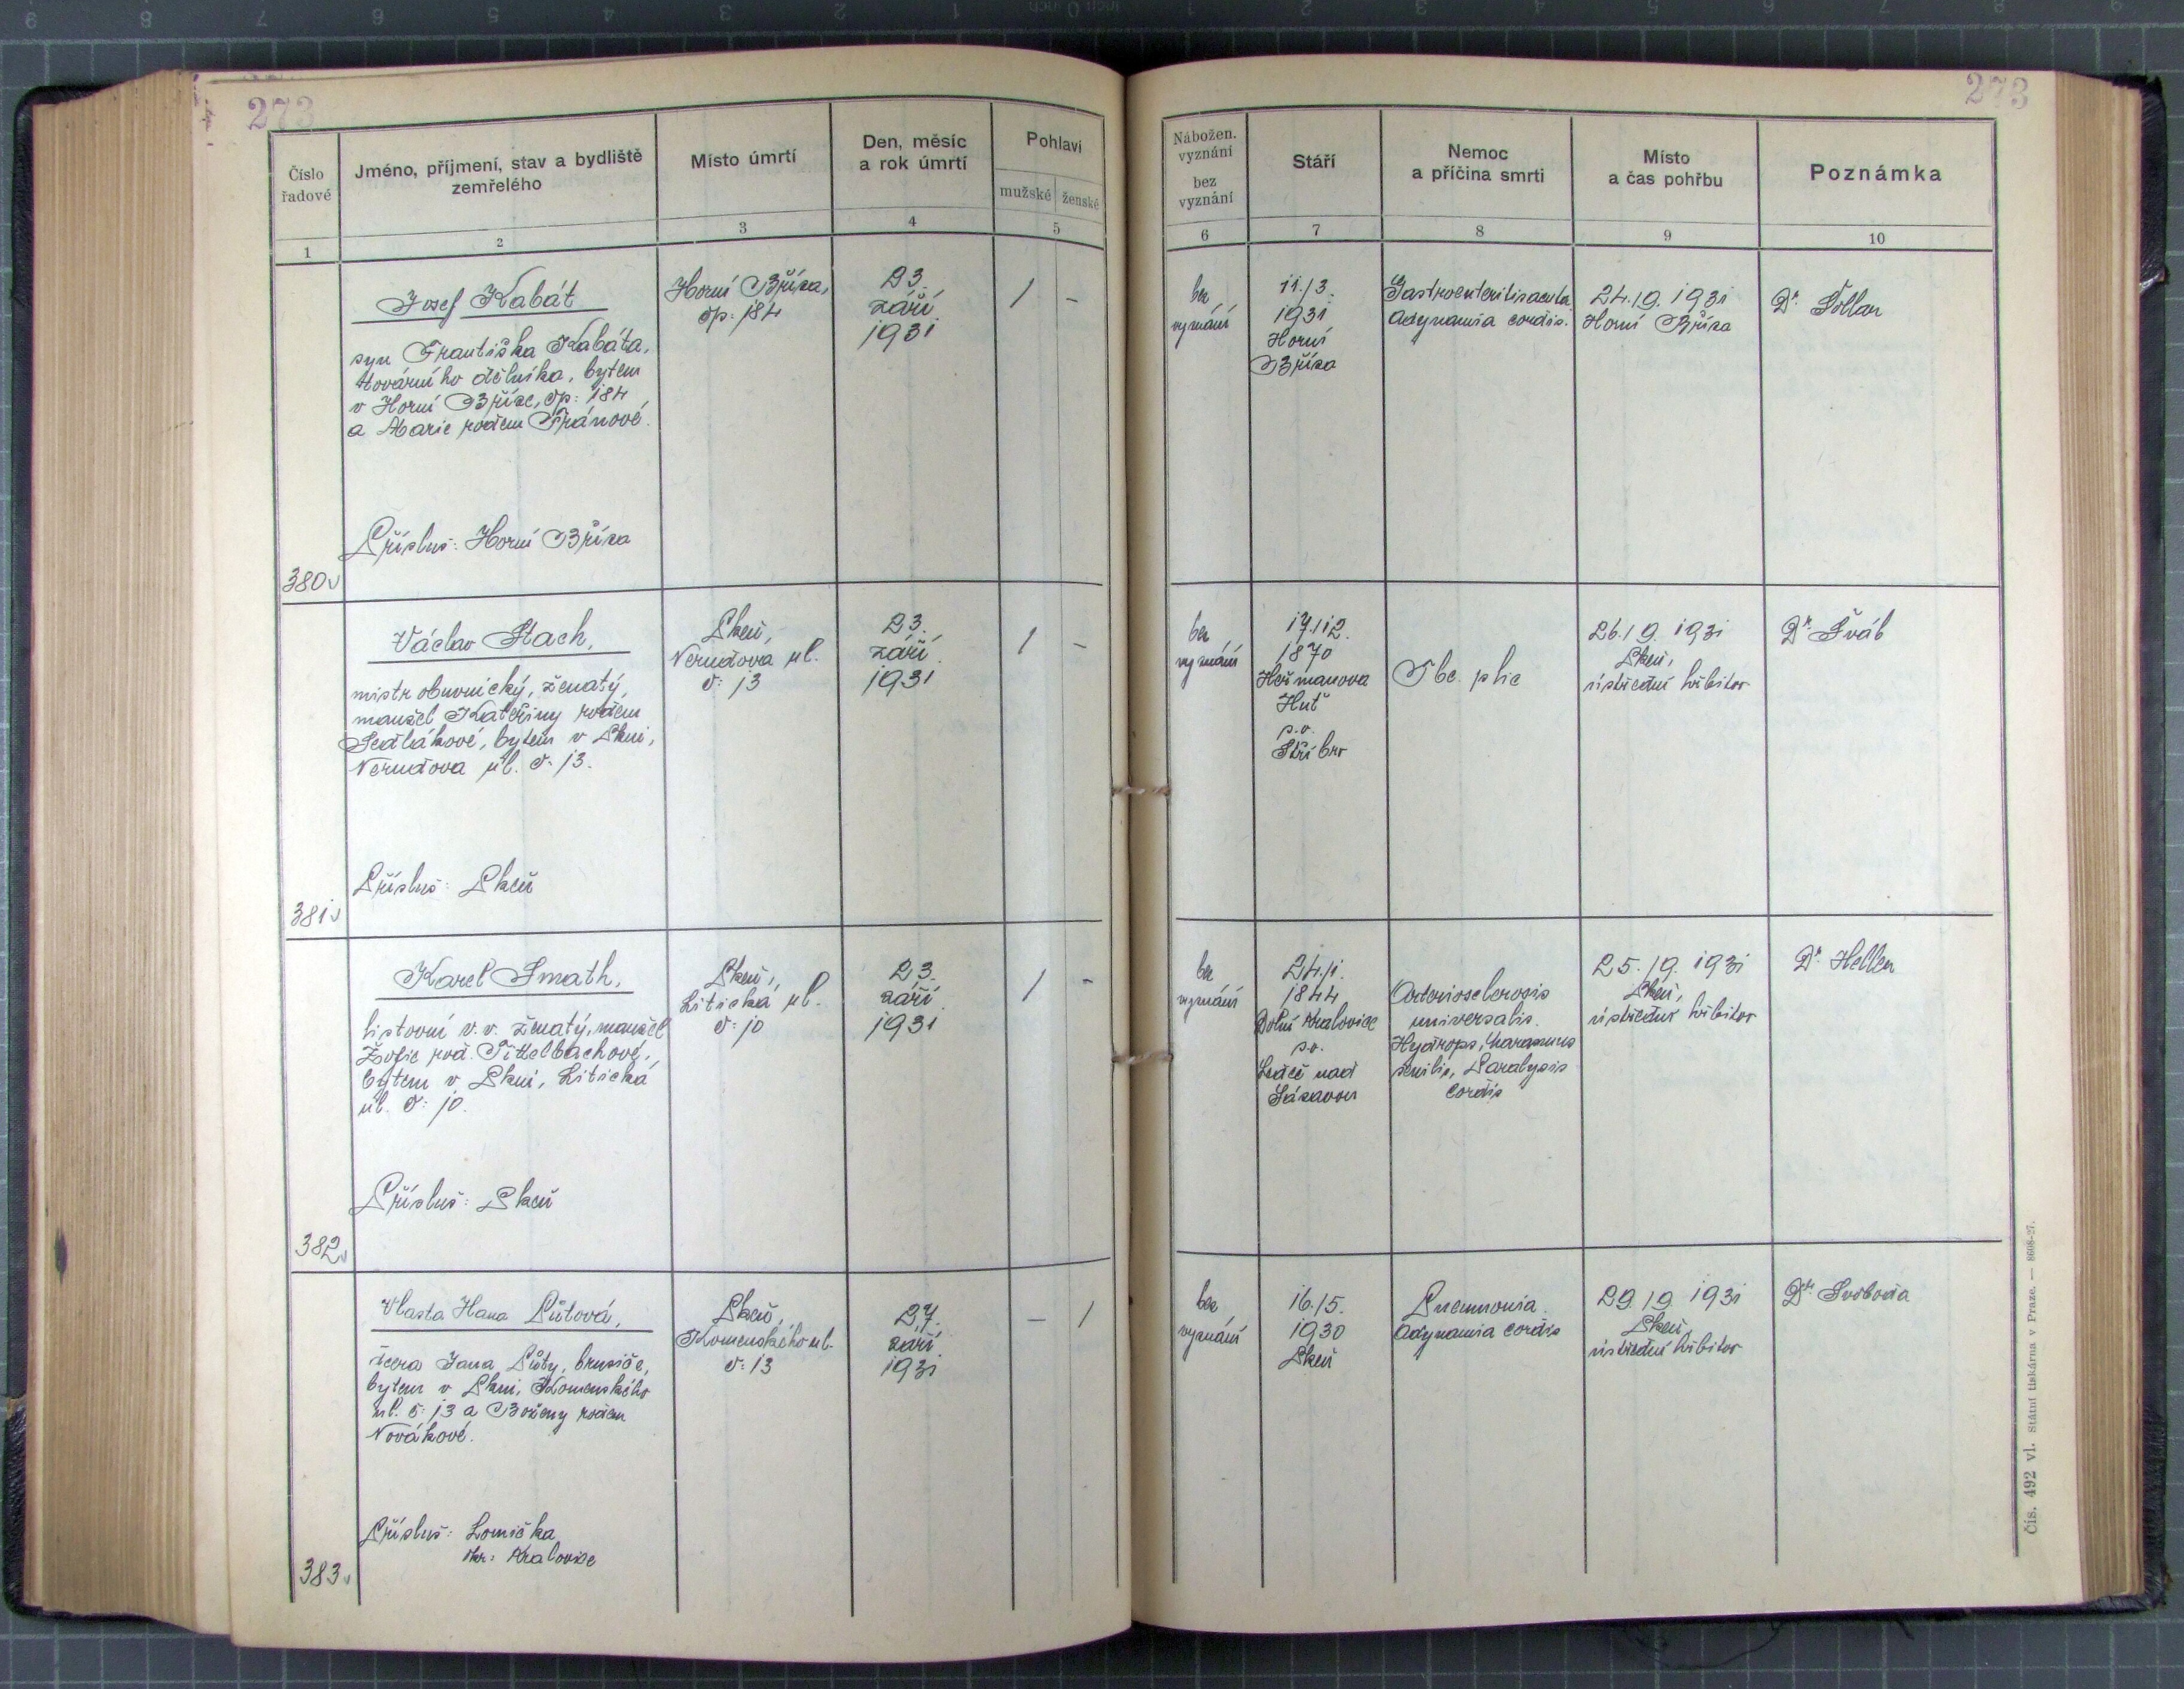 273
273
Číslo řadové
Jméno, příjmení, stav a bydliště zemřelého
Místo úmrtí
Den, měsíc a rok úmrtí
Pohlaví
mužské ženské
Nábožen. vyznání
bez vyznání
Stáří
Nemoc a příčina smrti
Místo a čas pohřbu
Poznámka
1 2 3 4 5 6 7 8 9 10
380
Josef Kabát
syn Františka Kabáta,
továrního dělníka, bytem
v Horní Bříze, čp: 184
a Marie rodem
Přísluš: Horní Bříza
Horní Bříza,
čp: 184
23.
září
1931
1 -
bez
vyznání
11./3.
1931
Horní
Bříza
Gastroenteritis acuta
Adynamia cordis.
24./9. 1931
Horní Bříza
Dr.
381
Václav Stach,
mistr obuvnický, ženatý,
manžel Kateřiny rodem
Sedlákové, bytem v Plzni,
Nerudova ul. č: 13.
Přísluš: Plzeň
Plzeň,
Nerudova ul.
č: 13
23.
září
1931
1 -
bez
vyznání
17./12.
1870
Heřmanova
Huť
p.o.
Stříbro
Tbc. plic
26./9. 1931
Plzeň,
ústřední hřbitov
Dr. Šváb
382
Karel Smath,
listovní v.v. ženatý, manžel
Žofie roz. Tittelbachové,
bytem v Plzni, Litická
ul. č: 10.
Přísluš: Plzeň
Plzeň,
Litická ul.
č: 10
23.
září
1931
1 -
bez
vyznání
24./1.
1844
Dolní Kralovice
p.o.
Ledeč nad
Sázavou
Arteriosclerosis
universalis.
Hydrops, marasmus
senilis, Paralysis
cordis
25./9. 1931
Plzeň,
ústřední hřbitov
Dr. Heller
383
Vlasta Hana Lůtová,
dcera Jana Lůty, brusiče,
bytem v Plzni, Komenského
ul. č: 13 a Boženy rodem
Novákové.
Přísluš: Lomička
okr: Kralovice
Plzeň,
Komenského ul.
č: 13
27.
září
1931
- 1
bez
vyznání
16./5.
1930
Plzeň
Pneumonia.
Adynamia cordis
29./9. 1931
Plzeň,
ústřední hřbitov
Dr. Svoboda
Čís. 492 vl. Státní tiskárna v Praze. — 8608-27.